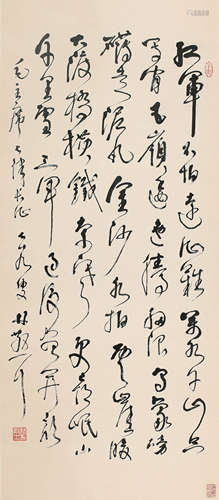 紅軍不怕遠征難萬水千山只
等閒五嶺逶迤騰細浪烏蒙磅
礴走泥丸金沙水拍雲崖暖
大渡橋橫鐵索寒更喜岷山
千里雪三軍過後盡開顏
毛主席七律長征